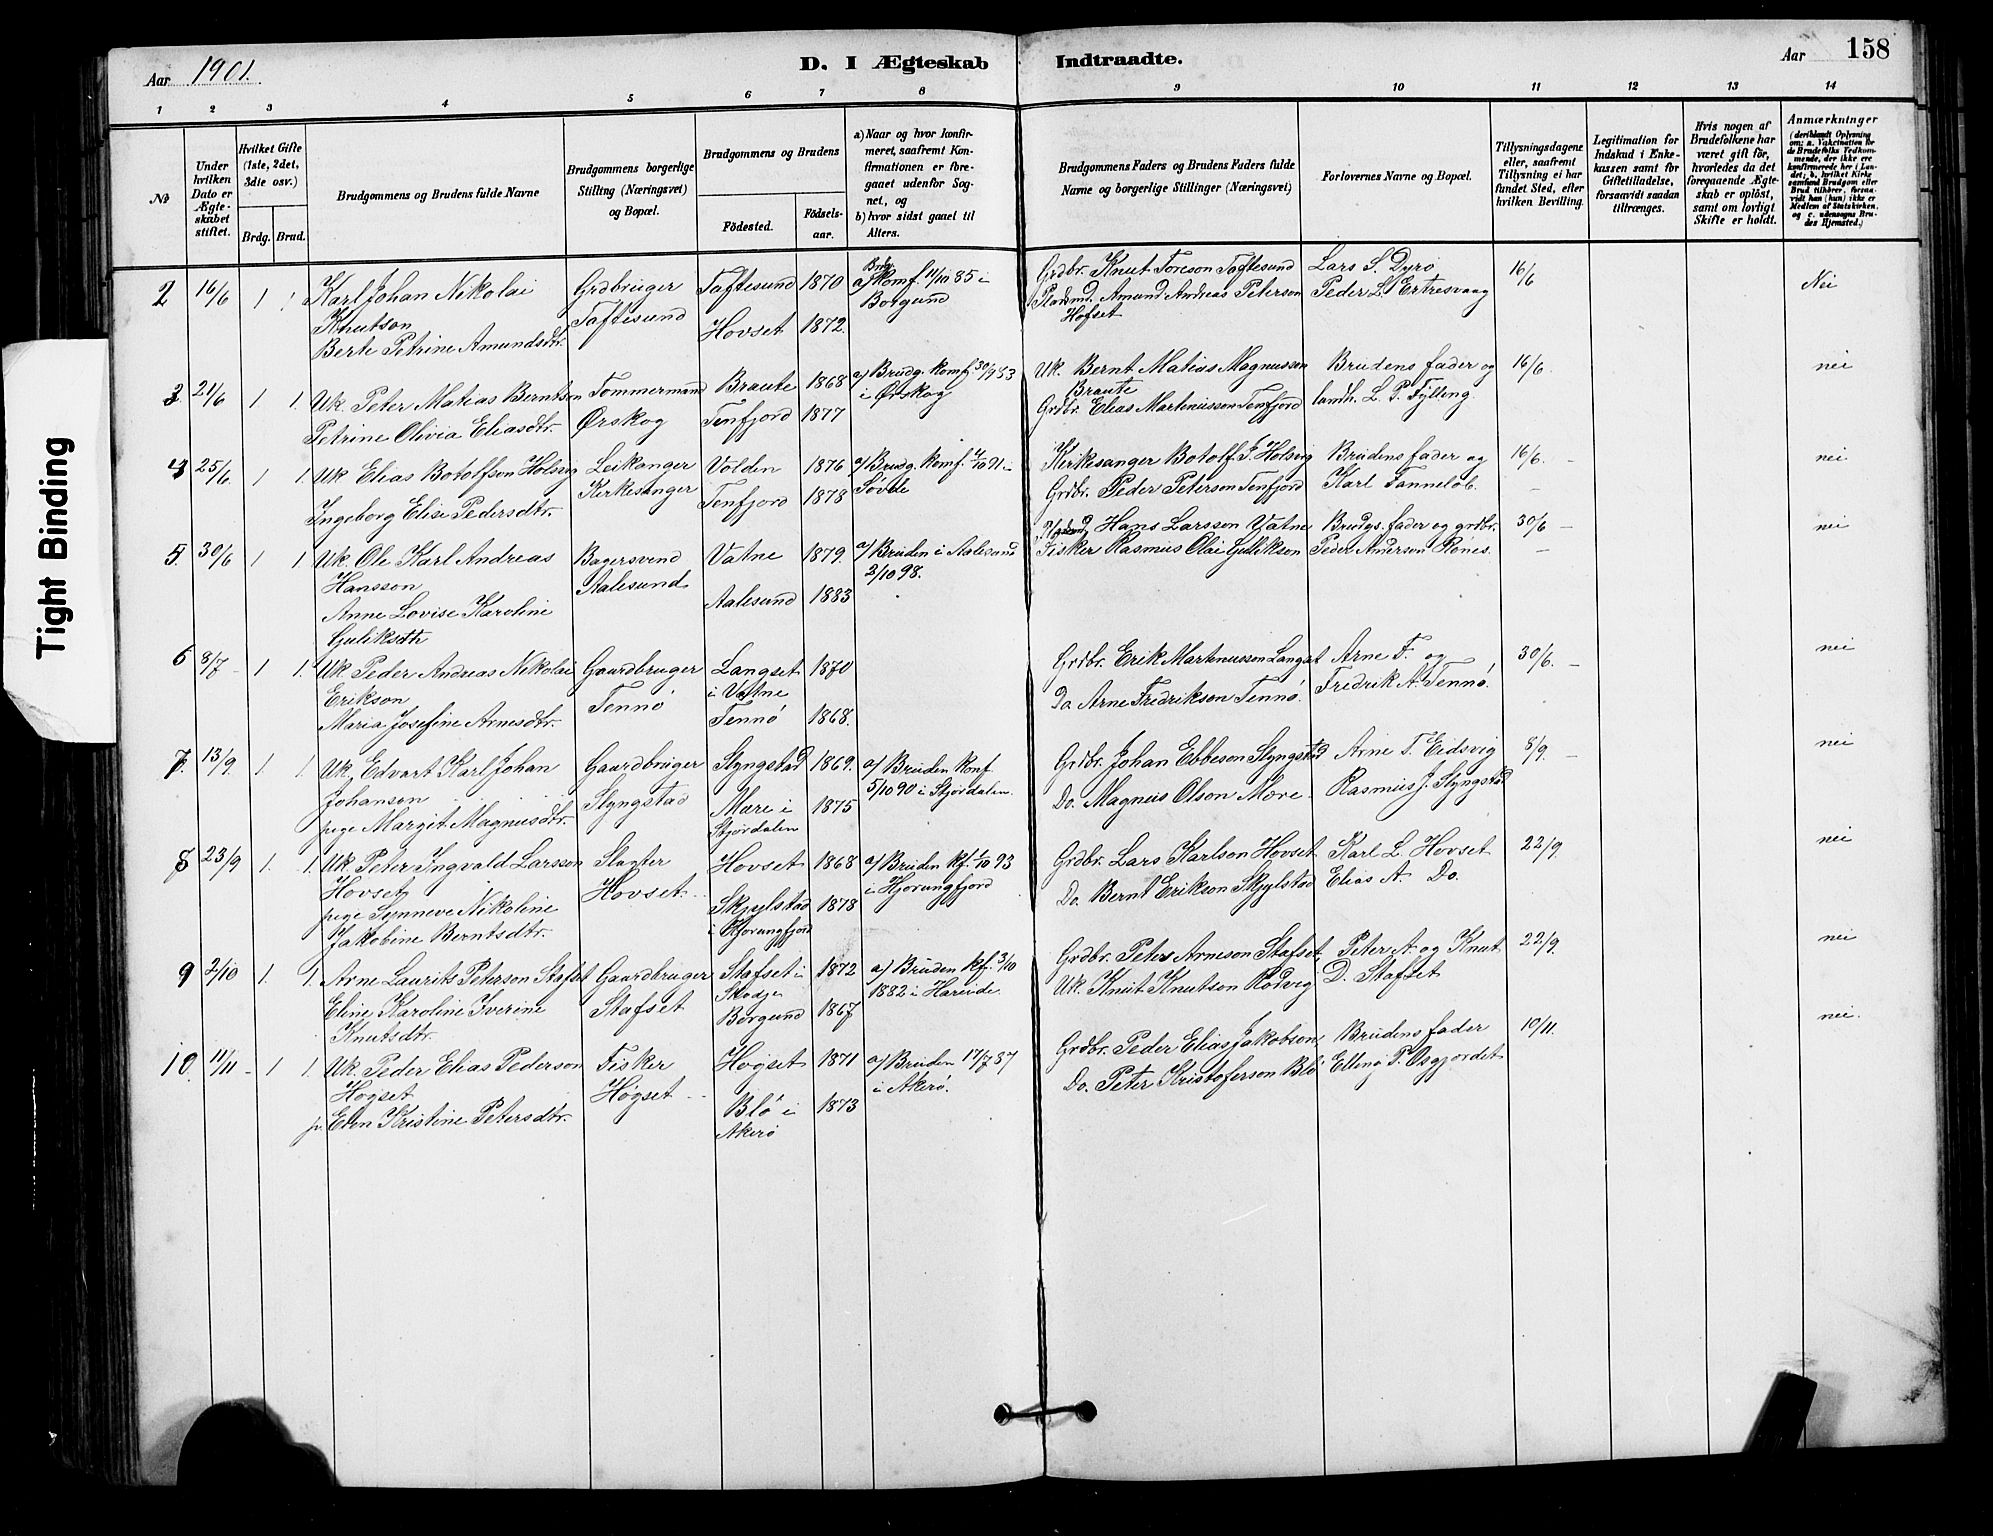 Tight Binding
Aar 1901.
D. I Ægteskab Indtraadte.
Aar 158
1 2 3 4 5 6 7 8 9 10 11 12 13 14
No
Under hvilken Dato er Ægteskabet stiftet.
Hvilket Gifte (1ste, 2det, 3die osv.)
Brdg. Brud.
Brudgommens og Brudens fulde Navne
Brudgommens borgerlige Stilling (Næringsvei) og Bopæl.
Brudgommens og Brudens
Födested.
Födselsaar.
a) Naar og hvor konfirmeret, saafremt Konfirmationen er foregaaet udenfor Sognet, og
b) hvor sidst gaaet til Alters.
Brudgommens Faders og Brudens Faders fulde Navne og borgerlige Stillinger (Næringsvei)
Forlovernes Navne og Bopæl.
Tillysningsdagene eller, saafremt Tillysning ei har fundet Sted, efter hvilken Bevilling.
Legitimation for Indskud i Enkekassen samt for Giftetilladelse, forsaavidt saadan tiltrænges.
Hvis nogen af Brudefolkene har været gift för, hvorledes da det foregaaende Ægteskab er oplöst, samt om lovligt Skifte er holdt.
Anmærkninger
(deriblandt Oplysning om: a. Vakcination for de Brudefolks Vedkommende, der ikke ere konfirmerede her i Landet; b. hvilket Kirkesamfund Brudgom eller Brud tilhörer, forsaavidt han (hun) ikke er Medlem af Statskirken, og c. udensogns Brudes Hjemsted.)
2 16/6 1 1 Karl Johan Nikolai Grdbruger Toftesund 1870 Brdg. a) Komf. 11/10 85 i Grdbr. Knut Toreson Toftesund Lars S. Dyrø 16/6 Nei
Knutson Toftesund Hovset 1872. Borgund Pladsmd. Amund Andreas Peterson Peder L. Ertresvaag
Berte Petrine Amundsdtr. Hofset
3 21/6 1 1. Uk. Peter Matias Berntsen Tommermand Braute 1868 a) Brudg. Komf. 30/9 83 Uk. Bernt Matias Magnusson Brudens fader og 16/6 nei
Petrine Olivia Eliasdtr. Ørskog Tenfjord 1877 i Ørskog Braute
Grdbr. Elias Martinusson Tenfjord landh. L. P. Fylling.
4 25/6 1 1. Uk Elias Botolfson Holsvig Leikanger Volden 1876 a) Brudg. Komf. 4/10 91 i Kirkesanger Botolf J. Holsvig Brudens fader og 16/6. nei
Ingeborg Elise Pedersdtr. Kirkesanger Tenfjord 1878 Søvde Grdbr. Peder Peterson Tenfjord Karl Tanneløb.
5. 30/6 1 1 Uk. Ole Karl Andreas Bagersvend Vatne 1879. a) Bruden i Aalesund Pladsmd. Hans Larsson Vatne Brudgs. fader og grdbr. 30/6 nei
Hansson Aalesund Aalesund 1883 2/10 98. Fisker Rasmus Olai Gulikson Peder Anderson Rønes.
Anne Lovise Karoline
Guliksdtr
6 8/7 1 1. Uk Peder Andreas Nikolai Gaardbruger Langset 1870 Grdbr. Erik Martinusson Langset Arne F. og 30/6. nei
Erikson Tennø i Vatne Do Arne Fredrikson Tennø. Fredrik A. Tennø.
Maria Josefine Arnesdtr. Tennø 1868.
7. 13/9 1. 1. Uk. Edvart Karl Johan Gaardbruger Slyngstad 1869. a) Bruden Konf. Grdbr. Johan Ebbeson Slyngstad Arne T. Eidsvig 8/9. nei
Johanson Slyngstad Mære i 1875 5/10 90 i Stjørdalen. Do. Magnus Olson Mære Rasmus J. Slyngstad
pige Margit Magnusdtr. Stjørdalen
8 23/9 1. 1. Uk. Peter Ingvald Larsson Slagter Hovset 1868 a) Bruden kf. 1/10 93 Grdbr. Lars Karlson Hovset Karl L. Hovset 22/9. nei
Hovset Hovset. Skjylstad 1878 i Hjørungfjord Do. Bernt Erikson Skjylstad Elias A. Do.
pige Synneve Nikoline i Hjørungfjord
Jakobine Berntsdtr.
9 2/10 1. 1. Arne Laurits Peterson Stafset Gaardbruger Stafset i 1872 a) Bruden kf. 3/10 Grdbr. Peter Arneson Stafset, Peter A. og Knut 22/9. nei
Eline Karoline Iverine Stafset Skodje 1882 i Hareide. Uk. Knut Knutson Rødvig D. Stafset
Knutsdtr. Borgund 1867
10. 11/11 1 1. Uk. Peder Elias Pederson Fisker Høgset 1871 a) Bruden 17/7 87 Grdbr. Peder Elias Jakobson, Brudens fader 10/11. nei.
Høgset Høgset Blø i 1873 i Akerø. Do. Peter Kristoferson Blø Elling P. Osgjordet
p. Elen Kristine Petersdtr. Akerø